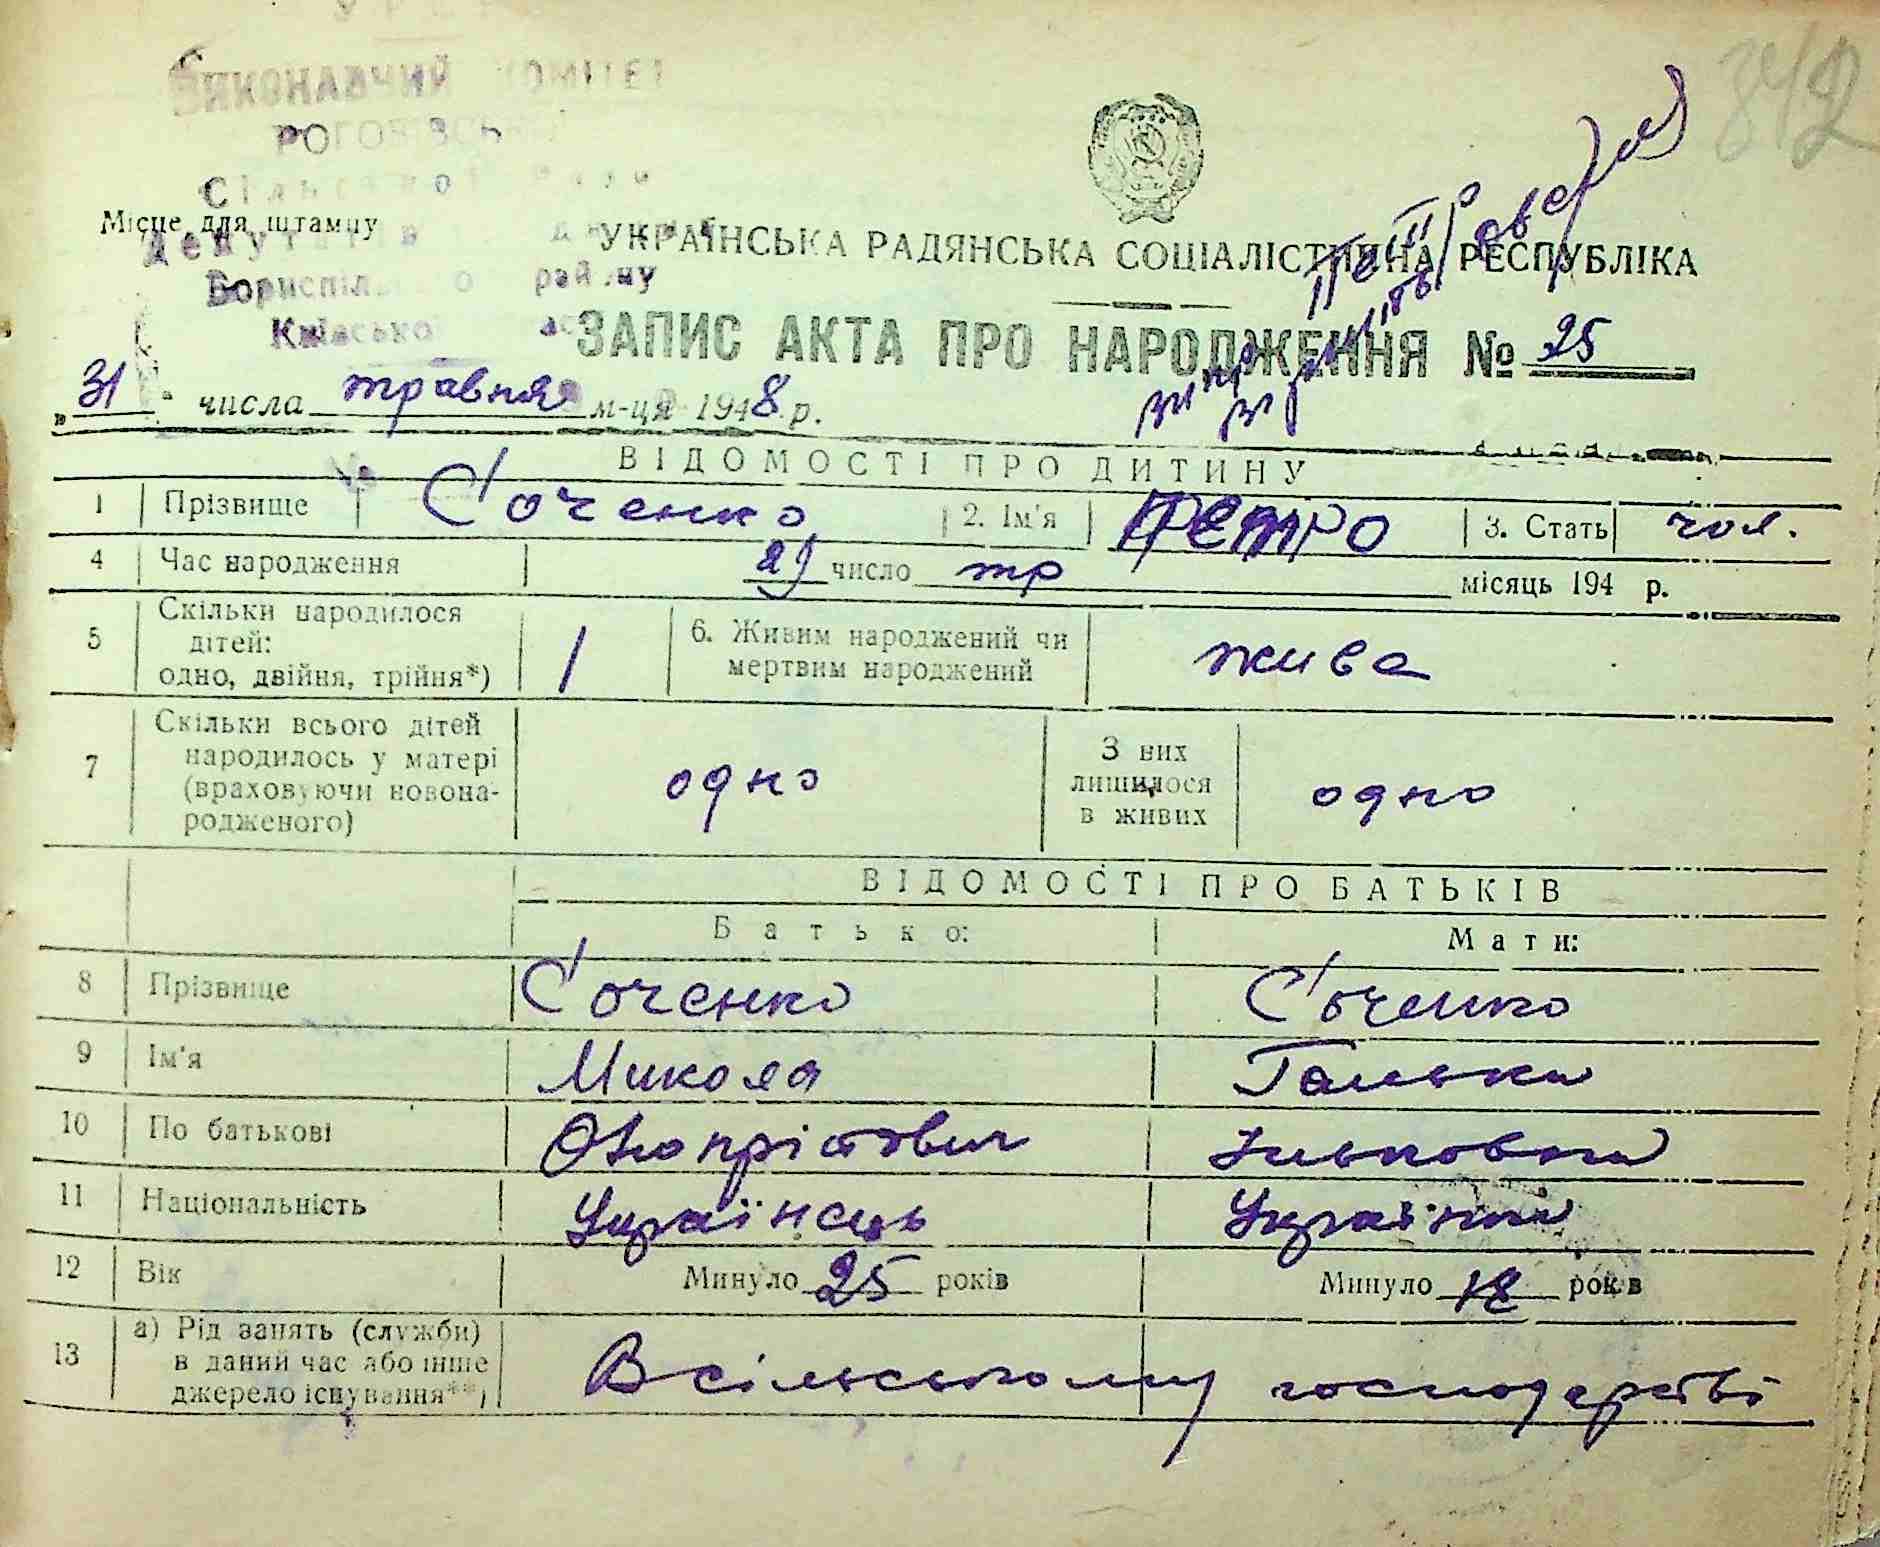 УРСР
ВИКОНАВЧИЙ КОМІТЕТ
РОГОЗІВСЬКОЇ
Сільської Ради
Місце для штампу
Депутатів
УКРАЇНСЬКА РАДЯНСЬКА СОЦІАЛІСТИЧНА РЕСПУБЛІКА
Бориспільського району
Київської
342
ЗАПИС АКТА ПРО НАРОДЖЕННЯ № 25
„31" числа травня м-ця 1948 р.
ВІДОМОСТІ ПРО ДИТИНУ
1 Прізвище Соченко 2. Ім'я ПЕТРО 3. Стать чол.
4 Час народження 29 число тр місяць 194 р.
5 Скільки народилося дітей: одно, двійня, трійня*) 1 6. Живим народжений чи мертвим народжений живе
7 Скільки всього дітей народилось у матері (враховуючи новонародженого) одно З них лишилося в живих одно
ВІДОМОСТІ ПРО БАТЬКІВ
Батько: Мати:
8 Прізвище Соченко Соченко
9 Ім'я Микола Галька
10 По батькові Оноprістович Ильковна
11 Національність Українець Українка
12 Вік Минуло 25 років Минуло 18 років
13 а) Рід занять (служби) в даний час або інше джерело існування**) В сільському господарстві